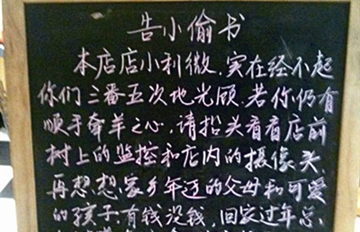 告小偷书
本店店小利微，实在经不起
你们三番五次地光顾，若你仍有
顺手牵羊之心，请抬头看看店前
树上的监控和店内的摄像头，
再想想家乡年迈的父母和可爱
的孩子，有钱没钱，回家过年总